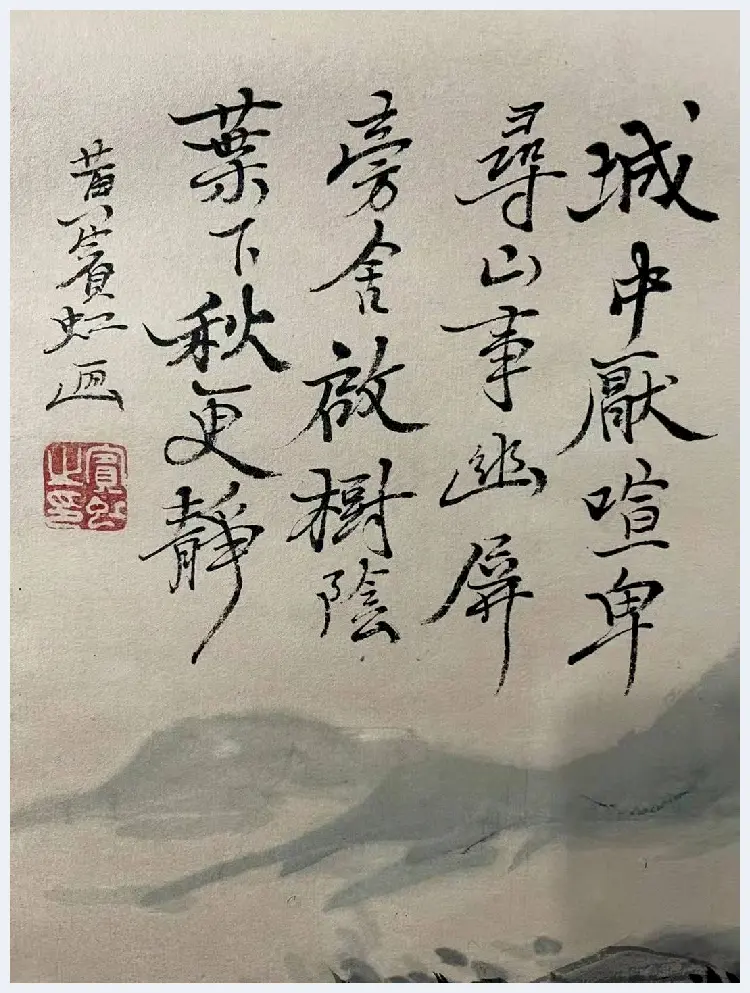 城中厭喧卑
尋山事幽屏
旁舍啟樹陰
葉下秋更靜
黃賓虹画
賓虹之印